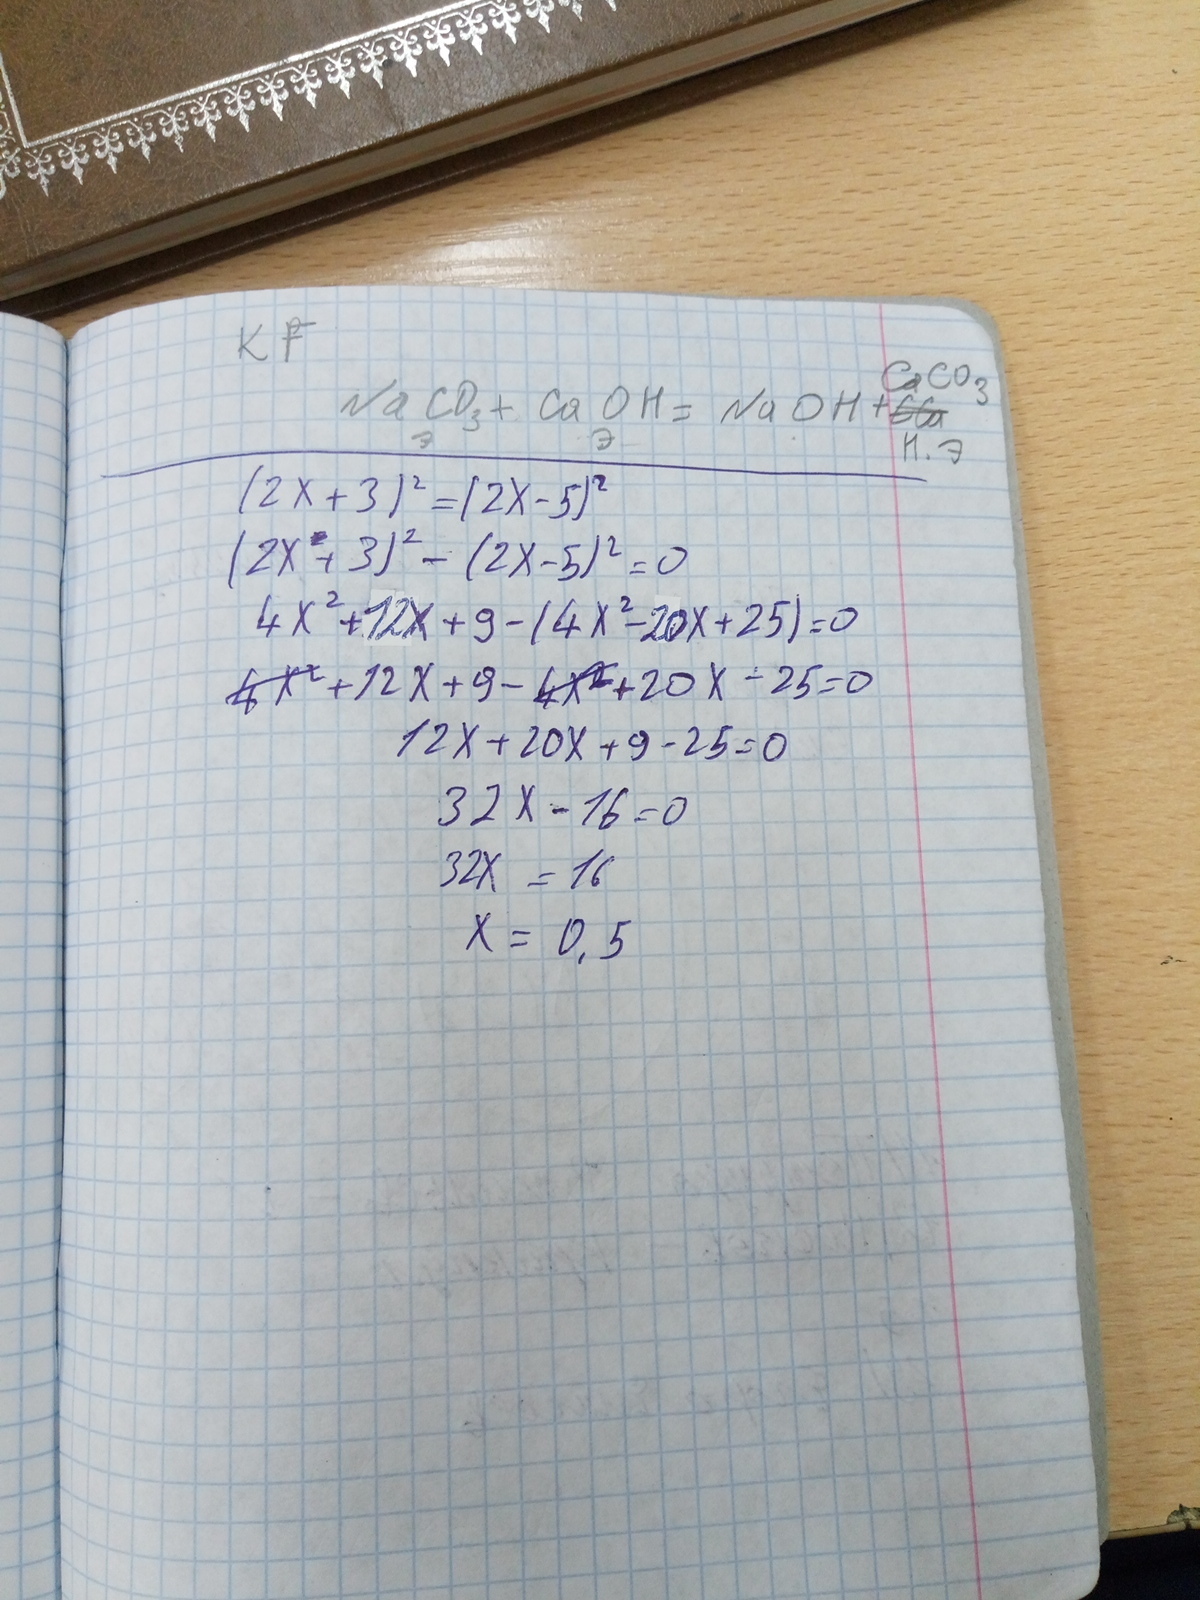 KF
NaCO₃ + CaOH = NaOH + CaCO₃
э э н.э
(2x+3)²=(2x-5)²
(2x+3)²-(2x-5)²=0
4x²+12x+9-(4x²-20x+25)=0
4x²+12x+9-4x²+20x-25=0
12x+20x+9-25=0
32x-16=0
32x=16
x=0,5